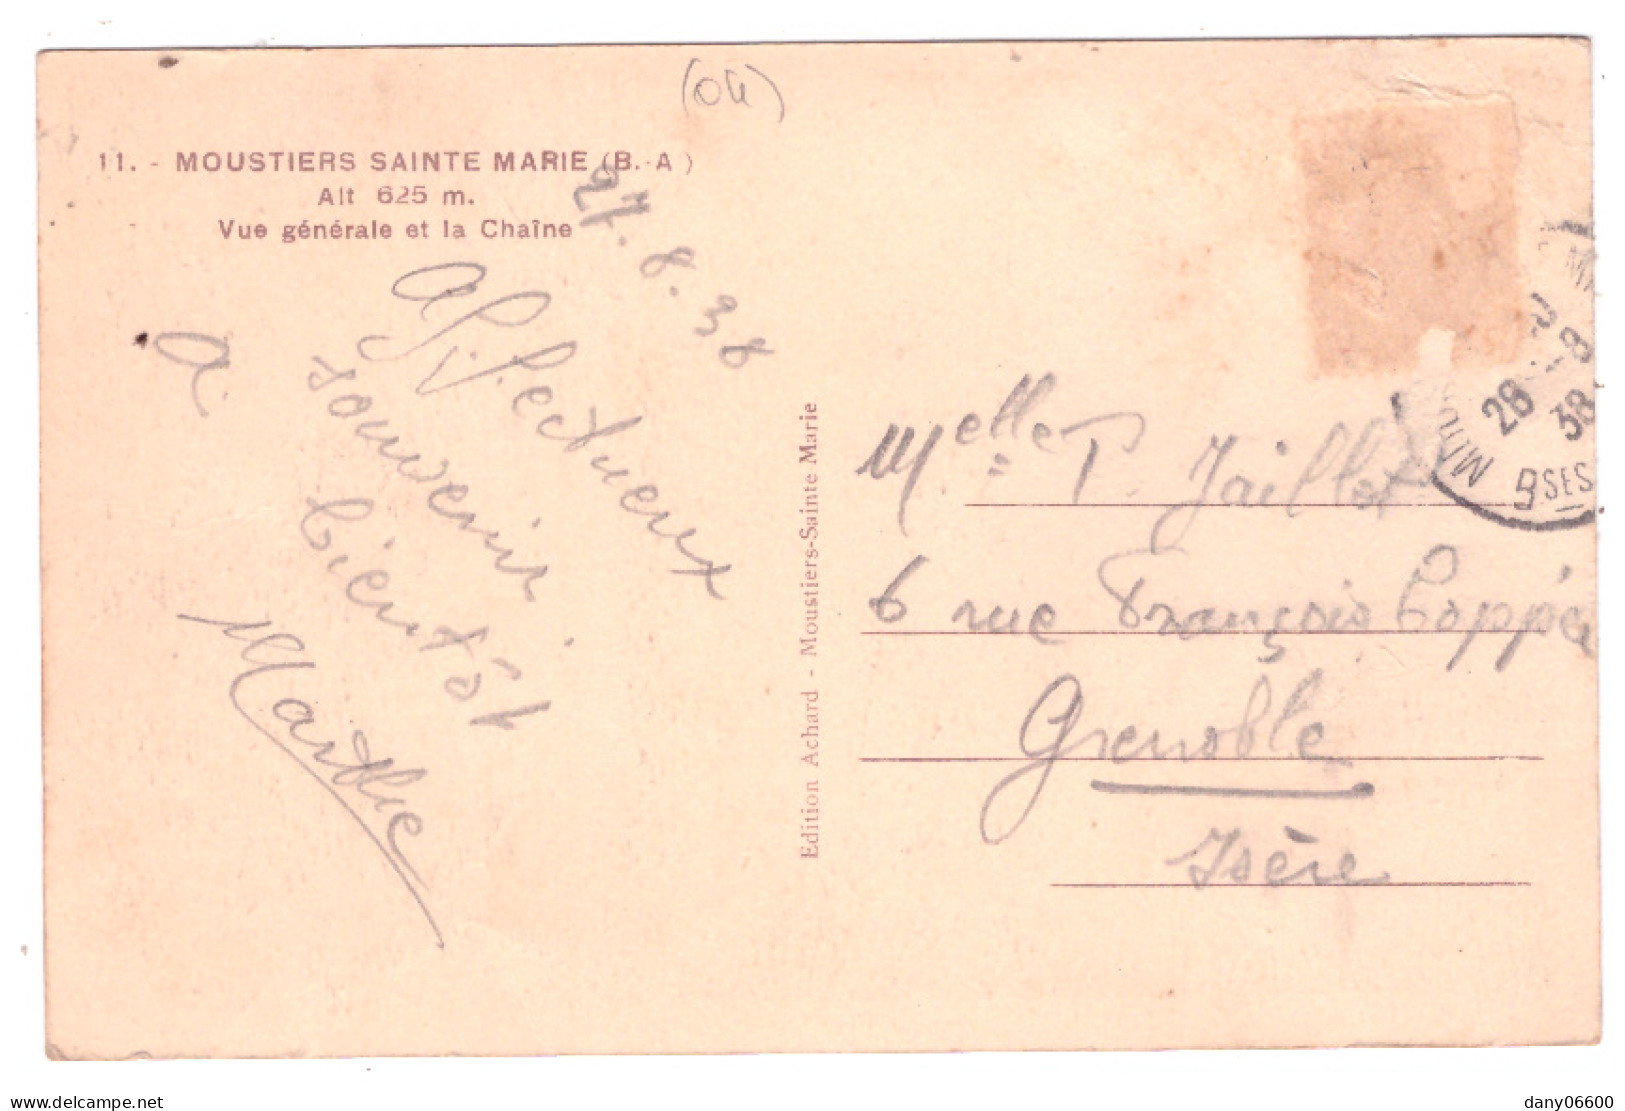 (04)
11. - MOUSTIERS SAINTE MARIE (B.-A)
Alt 625 m.
Vue générale et la Chaîne
27.8.38
Affectueux
souvenir
A bientôt
Marthe
Edition Achard - Moustiers-Sainte Marie
28 - 8
38
BSES
Melle P. Jaillet
6 rue François Coppée
Grenoble
Isère
delcampe.net
dany06600